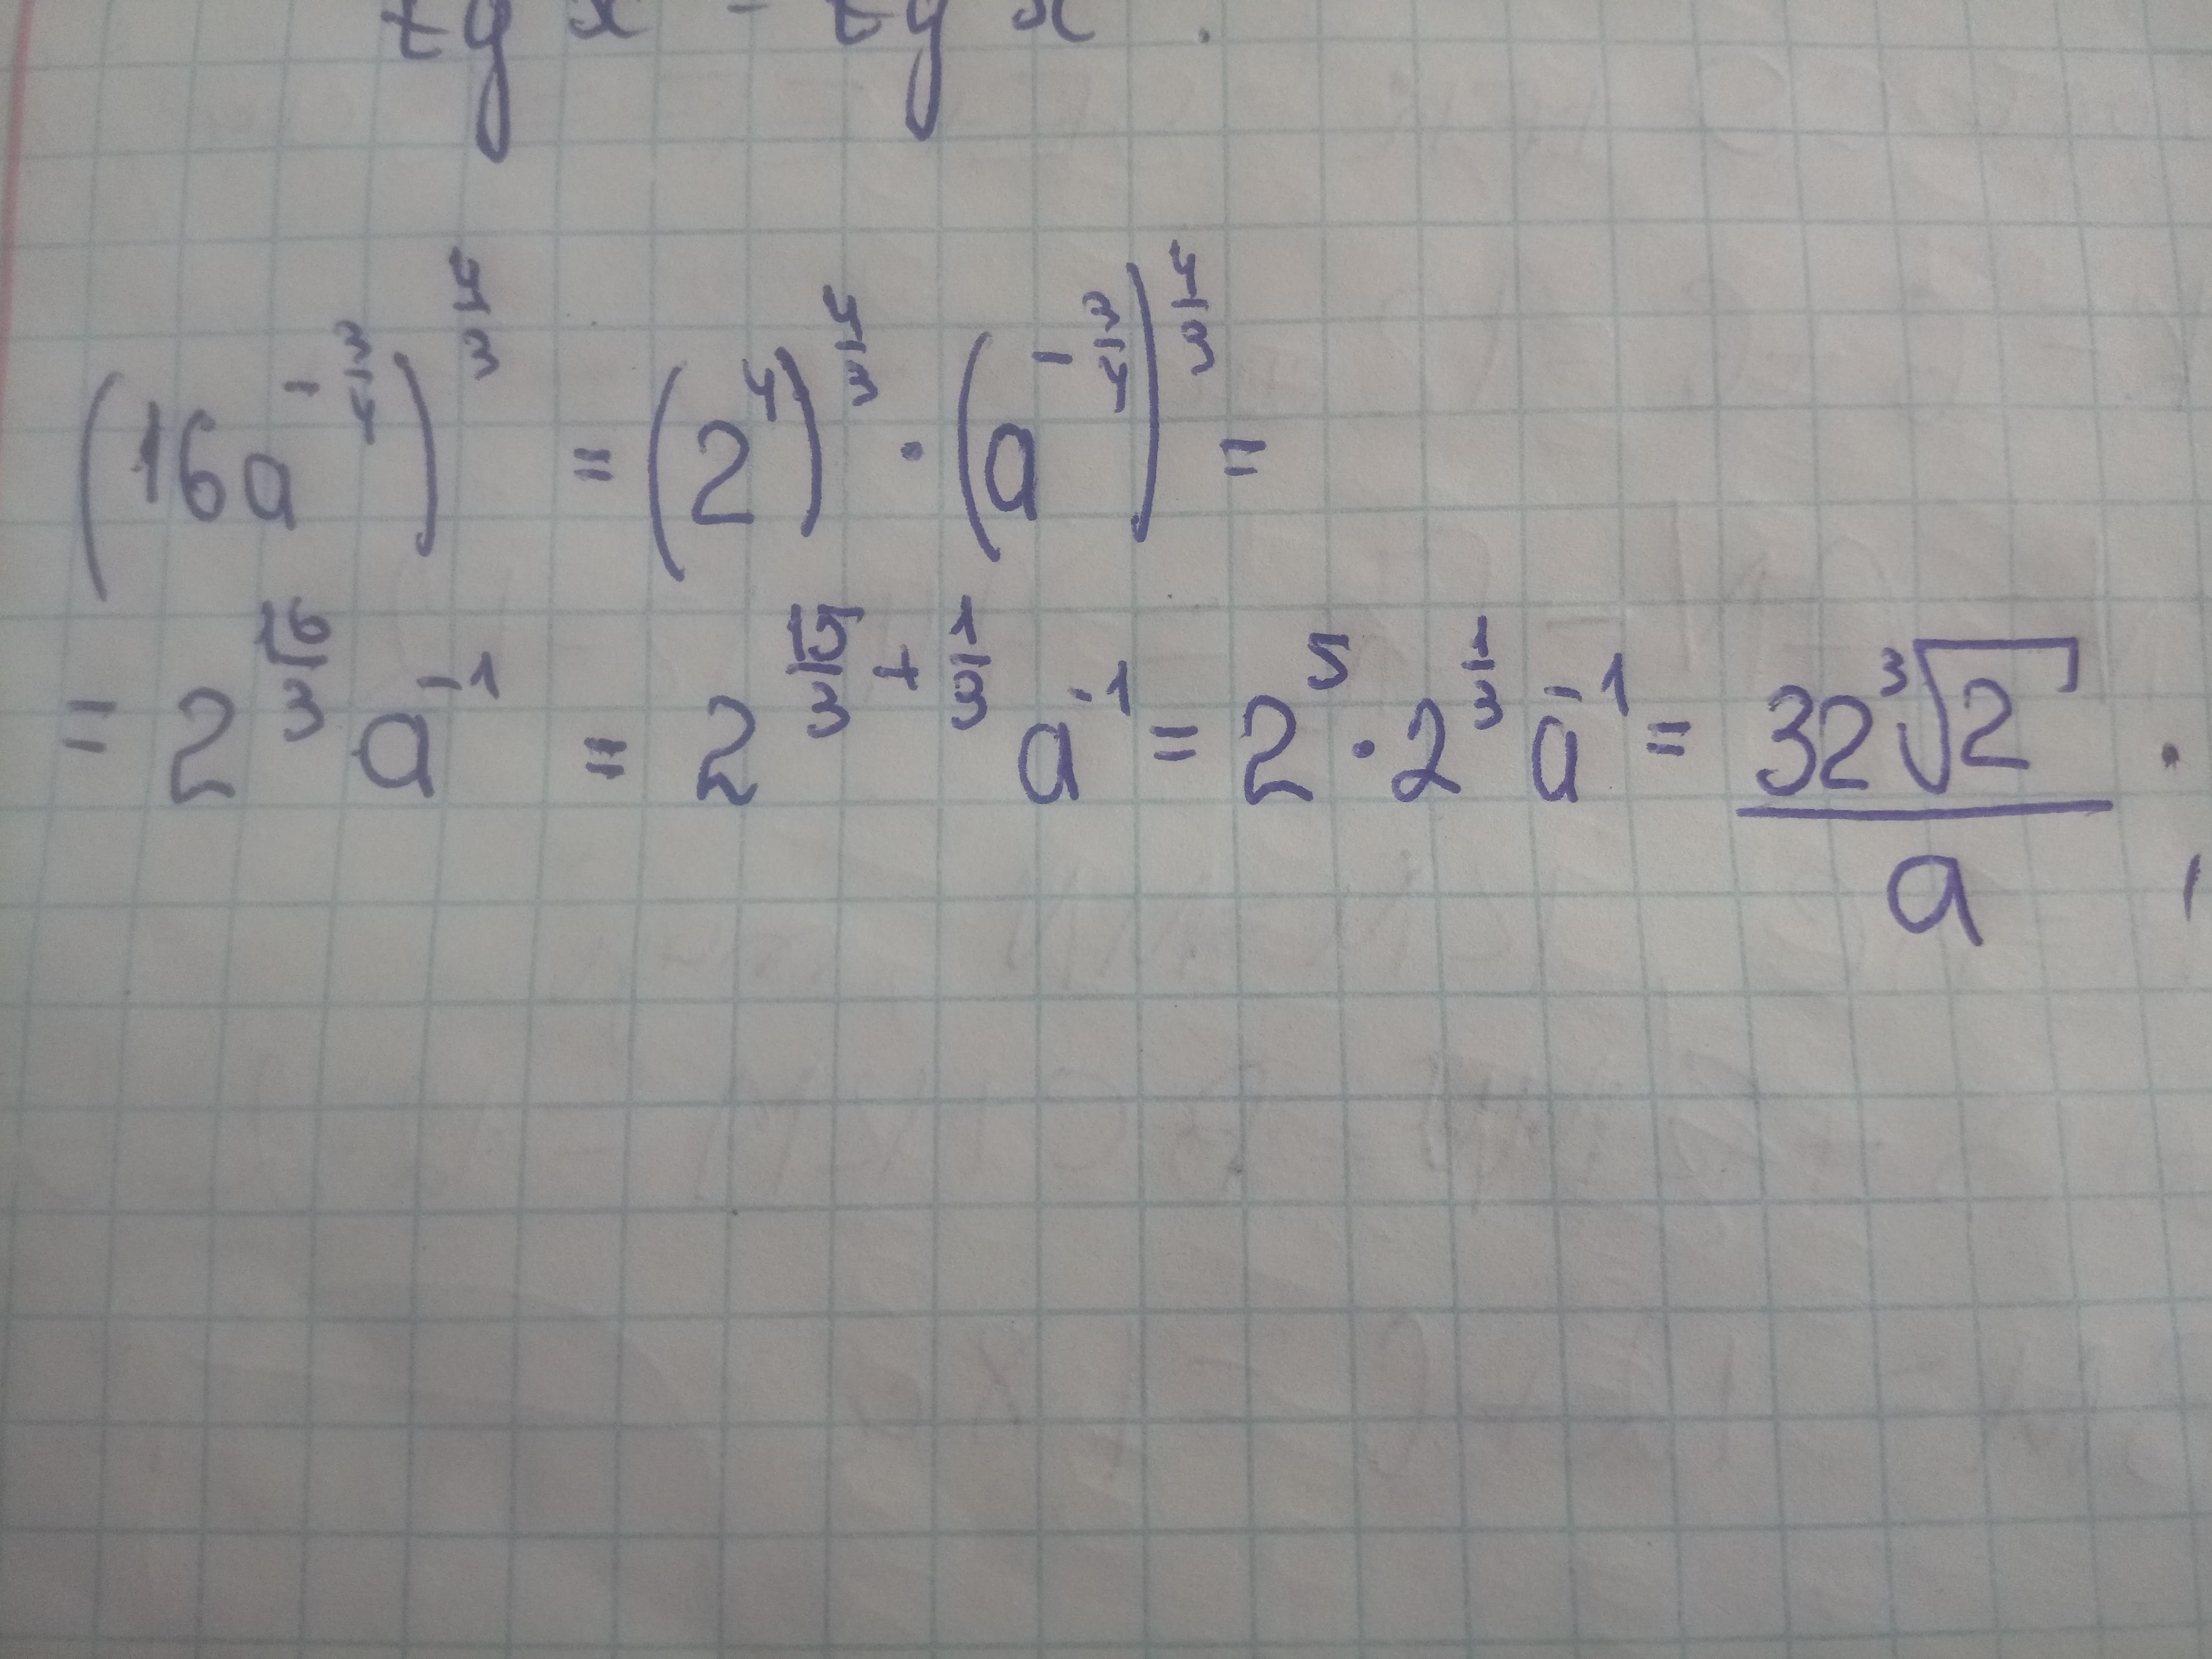 tg x - tg x .
(16a^{-\frac{3}{4}})^{\frac{4}{3}} = (2^4)^{\frac{4}{3}} · (a^{-\frac{3}{4}})^{\frac{4}{3}} =
= 2^{\frac{16}{3}} a^{-1} = 2^{\frac{15}{3} + \frac{1}{3}} a^{-1} = 2^5 · 2^{\frac{1}{3}} a^{-1} = \frac{32\sqrt[3]{2}}{a} .